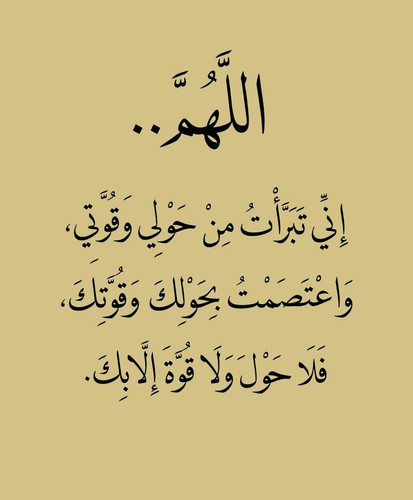 اللَّهُمَّ..
إِنِّي تَبَرَّأْتُ مِنْ حَوْلِي وَقُوَّتِي،
وَاعْتَصَمْتُ بِحَوْلِكَ وَقُوَّتِكَ،
فَلَا حَوْلَ وَلَا قُوَّةَ إِلَّا بِكَ.